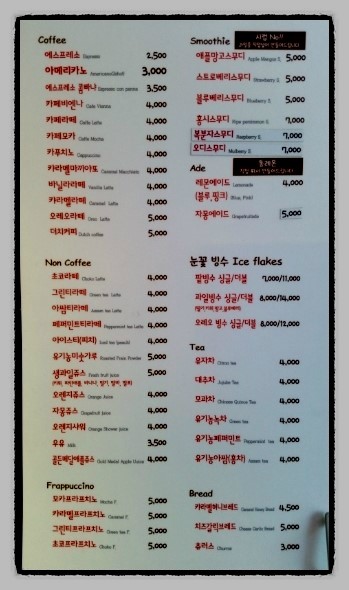 Coffee
에스프레소 Espresso 2,500
아메리카노 Americano 3,000
에스프레소 콤빠나 Espresso con panna 3,500
카페비엔나 Cafe Vienna 4,000
카페라떼 Caffe Latte 4,000
카페모카 Caffe Mocha 4,000
카푸치노 Cappuccino 4,000
카라멜마끼아또 Caramel Macchiato 4,000
바닐라라떼 Vanilla Latte 4,000
카라멜라떼 Caramel Latte 4,000
오레오라떼 Oreo Latte 5,000
더치커피 Dutch coffee 5,000
Non Coffee
초코라떼 Choko Latte 4,000
그린티라떼 Green tea Latte 4,000
아쌈티라떼 Assam tea Latte 4,000
페퍼민트티라떼 Peppermint tea Latte 4,000
아이스티(피치) Iced tea (peach) 4,000
유기농미숫가루 Roasted Grain Powder 5,000
생과일쥬스 Fresh fruit juice 5,000
오렌지쥬스 Orange Juice 4,000
자몽쥬스 Grapefruit Juice 4,000
오렌지샤워 Orange Shower Juice 4,000
우유 Milk 3,500
골든메달애플쥬스 Gold Medal Apple Juice 4,000
Frappuccino
모카프라프치노 Mocha F. 5,000
카라멜프라프치노 Caramel F. 5,000
그린티프라프치노 Green tea F. 5,000
초코프라프치노 Choko F. 5,000
Smoothie 시럽 No!!
애플망고스무디 Apple Mango S. 5,000
스토로베리스무디 Strawberry S. 5,000
블루베리스무디 Blueberry S. 5,000
홍시스무디 Ripe persimmon S. 7,000
복분자스무디 Raspberry S. 7,000
오디스무디 Mulberry S. 7,000
Ade
레몬에이드 Lemonade 4,000
(블루,핑크) (Blue, Pink)
자몽에이드 Grapefruitade 5,000
눈꽃 빙수 Ice flakes
팥빙수 싱글/더블 7,000/11,000
과일빙수 싱글/더블 8,000/14,000
오레오 빙수 싱글/더블 8,000/12,000
Tea
유자차 Citron tea 4,000
대추차 Jujube Tea 4,000
모과차 Chinese Quince Tea 4,000
유기농녹차 Green tea 4,000
유기농페퍼민트 Peppermint tea 4,000
유기농아쌈(홍차) Assam tea 4,000
Bread
카라멜허니브레드 4,500
치즈갈릭브레드 Cheese Garlic Bread 5,000
츄러스 Churros 3,000